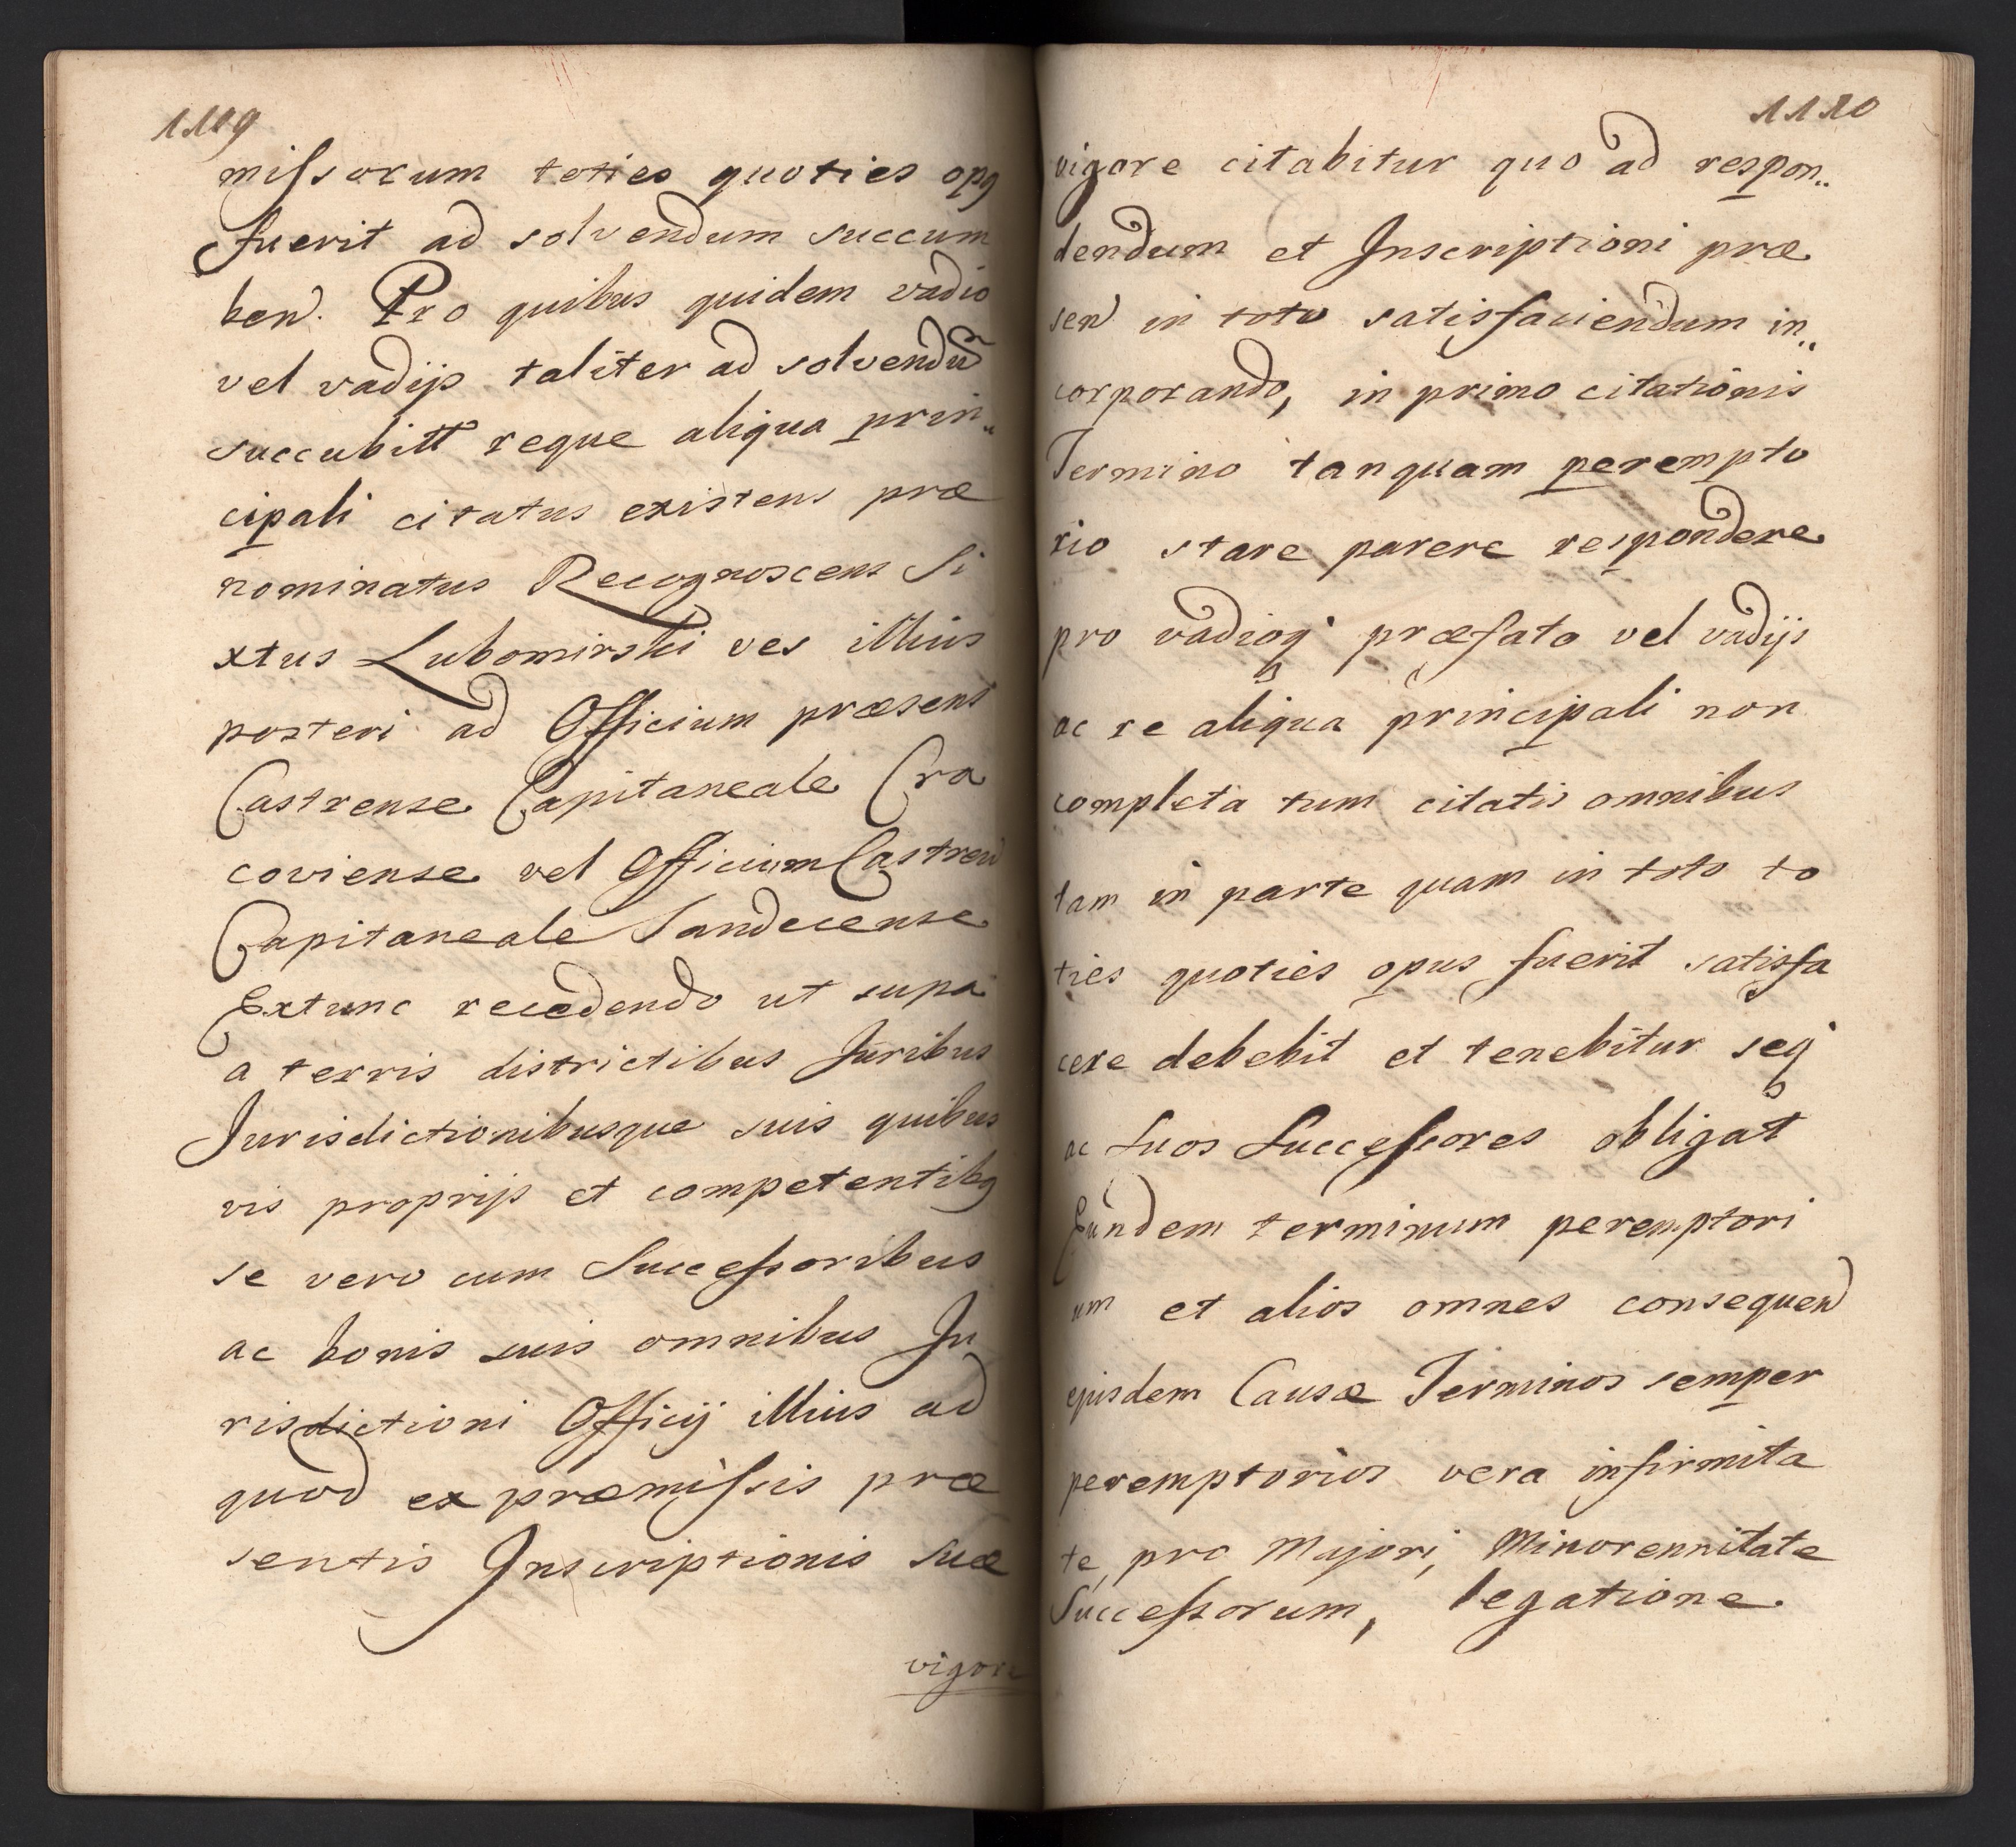 1109
missorum toties quoties opq
fuerit ad solvendum succum
ben. Pro quibus quidem vadio
vel vadijs taliter ad solvendũ
succubitt reque aliqua prin„
cipali citatus existens præ
nominatus Recognoscens Si
xtus Lubomirski ves illius
posteri ad Officium præsens
Castrense Capitaneale Cra
coviense vel Officium Castren
Capitaneale Sandecense
Extunc recedendo ut supa
a terris districtibus Juribus
Jurisdictionibusque suis quibus
vis proprijs et competentibq
se vero cum Successoribus
ac bonis suis omnibus Ju
risdictioni Officij illius ad
quod ex præmissis præ
sentis Inscriptionis suæ
vigore
1110
vigore citabitur quo ad respon„
dendum et Inscriptioni præ
sen in toto satisfaciendum in„
corporando, in primo citationis
Termino tanquam perempto
rio stare parere respondere
pro vadioq præfato vel vadijs
ac re aliqua principali non
completa tum citatis omnibus
tam in parte quam in toto to
ties quoties opus fuerit satisfa
cere debebit et tenebitur seq
ac suos Successores obligat
Eundem terminum peremptori
um et alios omnes consequen
ejusdem Causæ Terminos semper
peremptorios vera infirmita
te, pro Majori, Minorennitate
Successorum, legatione